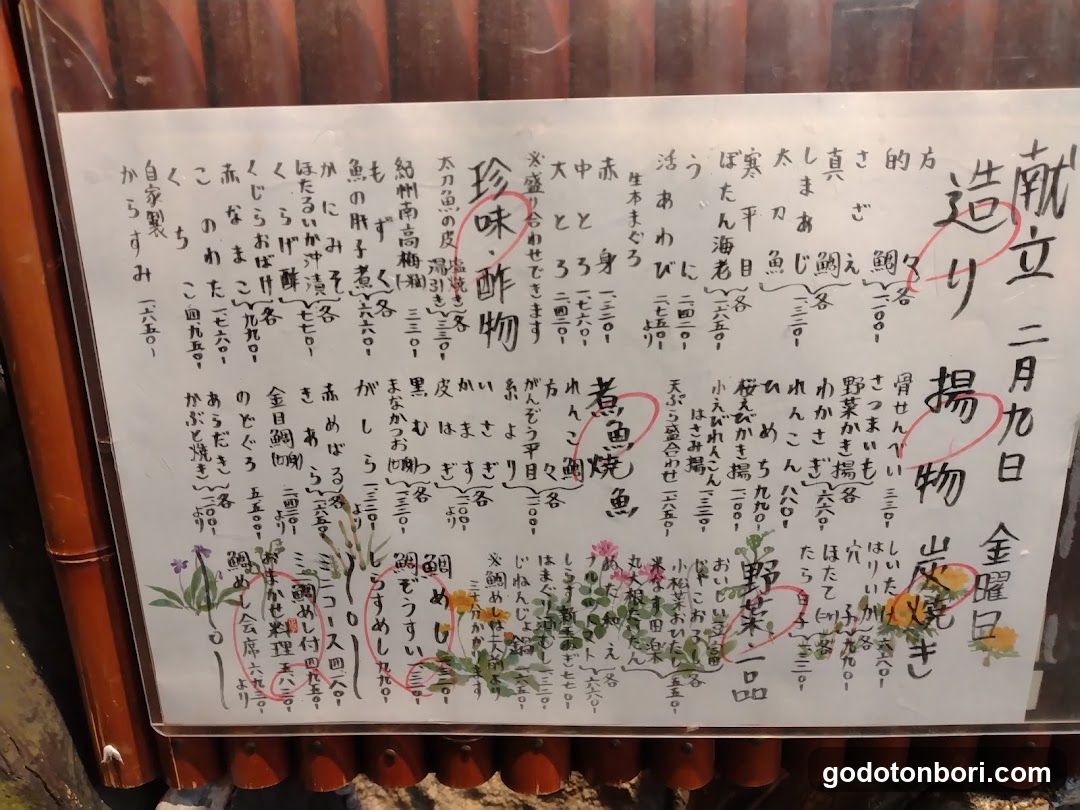 献立 二月九日 金曜日
造り
方々
的鯛 各一、一〇〇-
さざえ
真鯛
しまあじ 各一、三二〇-
太刀魚
寒平目
ぼたん海老 各一、六五〇-
うに 二、四二〇-
活あわび 二、七五〇-より
生本まぐろ
赤身 一、三二〇-
中とろ 一、七六〇-
大とろ 二、四二〇-
※盛り合わせできます
珍味・酢物
太刀魚の皮 塩焼き 湯引き 各三三〇-
紀州南高梅 三三〇-
もずく
魚の肝子煮 各六六〇-
かにみそ
ほたるいか沖漬
くらげ酢 各七七〇-
くじらおばけ
赤なまこ 各九九〇-
このわた 一、七六〇-
くちこ 四、九五〇-
自家製
からすみ 一、六五〇-
揚物
骨せんべい 三三〇-
さつまいも
野菜かき揚
わかさぎ 各六六〇-
れんこん 八八〇-
ひめち 九九〇-
桜えびかき揚 一、一〇〇-
小えびれんこん
はさみ揚 一、三二〇-
天ぷら盛合わせ 一、六五〇-
煮魚・焼魚
れんこ鯛
方々
がんぞう平目
糸より 各一、一〇〇-
いさぎ
かます
皮はぎ
黒むつ
まなかつお 各一、三二〇-
がしら 一、三二〇-より
赤めばる
きあら 各一、六五〇-
金目鯛 二、四二〇-より
のどぐろ 五、五〇〇-
あらだき
かぶと焼き 各一、一〇〇-より
炭焼き
しいたけ 六六〇-
はりいか
穴子 各九九〇-
ほたて
たら白子 各一、三二〇-
野菜・一品
小松菜おひたし 各五五〇-
丸大根
フルーツトマト 各六六〇-
しらす新玉ねぎ 七七〇-
はまぐり酒むし 一、三二〇-
じねんじょ鍋 一、六五〇-
※鯛めし(二人前より
三十分かかります
鯛めし
鯛ぞうすい 各一、三二〇-
しらすめし 九九〇-
ミニコース 四、一八〇-
ミニ鯛めし付 四、九五〇-
おまかせ料理 五、八三〇-
鯛めし会席 六、九三〇-より
godotonbori.com